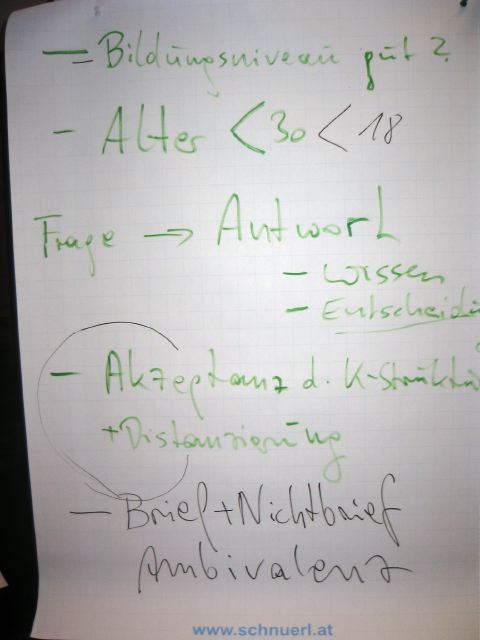 — = Bildungsniveau gut?
- Alter < 30 < 18
Frage → Antwort
- wissen
- Entscheidu
- Akzeptanz d. K-Struktu
+ Distanzierung
- Brief + Nichtbrief
Ambivalenz
www.schnuerl.at